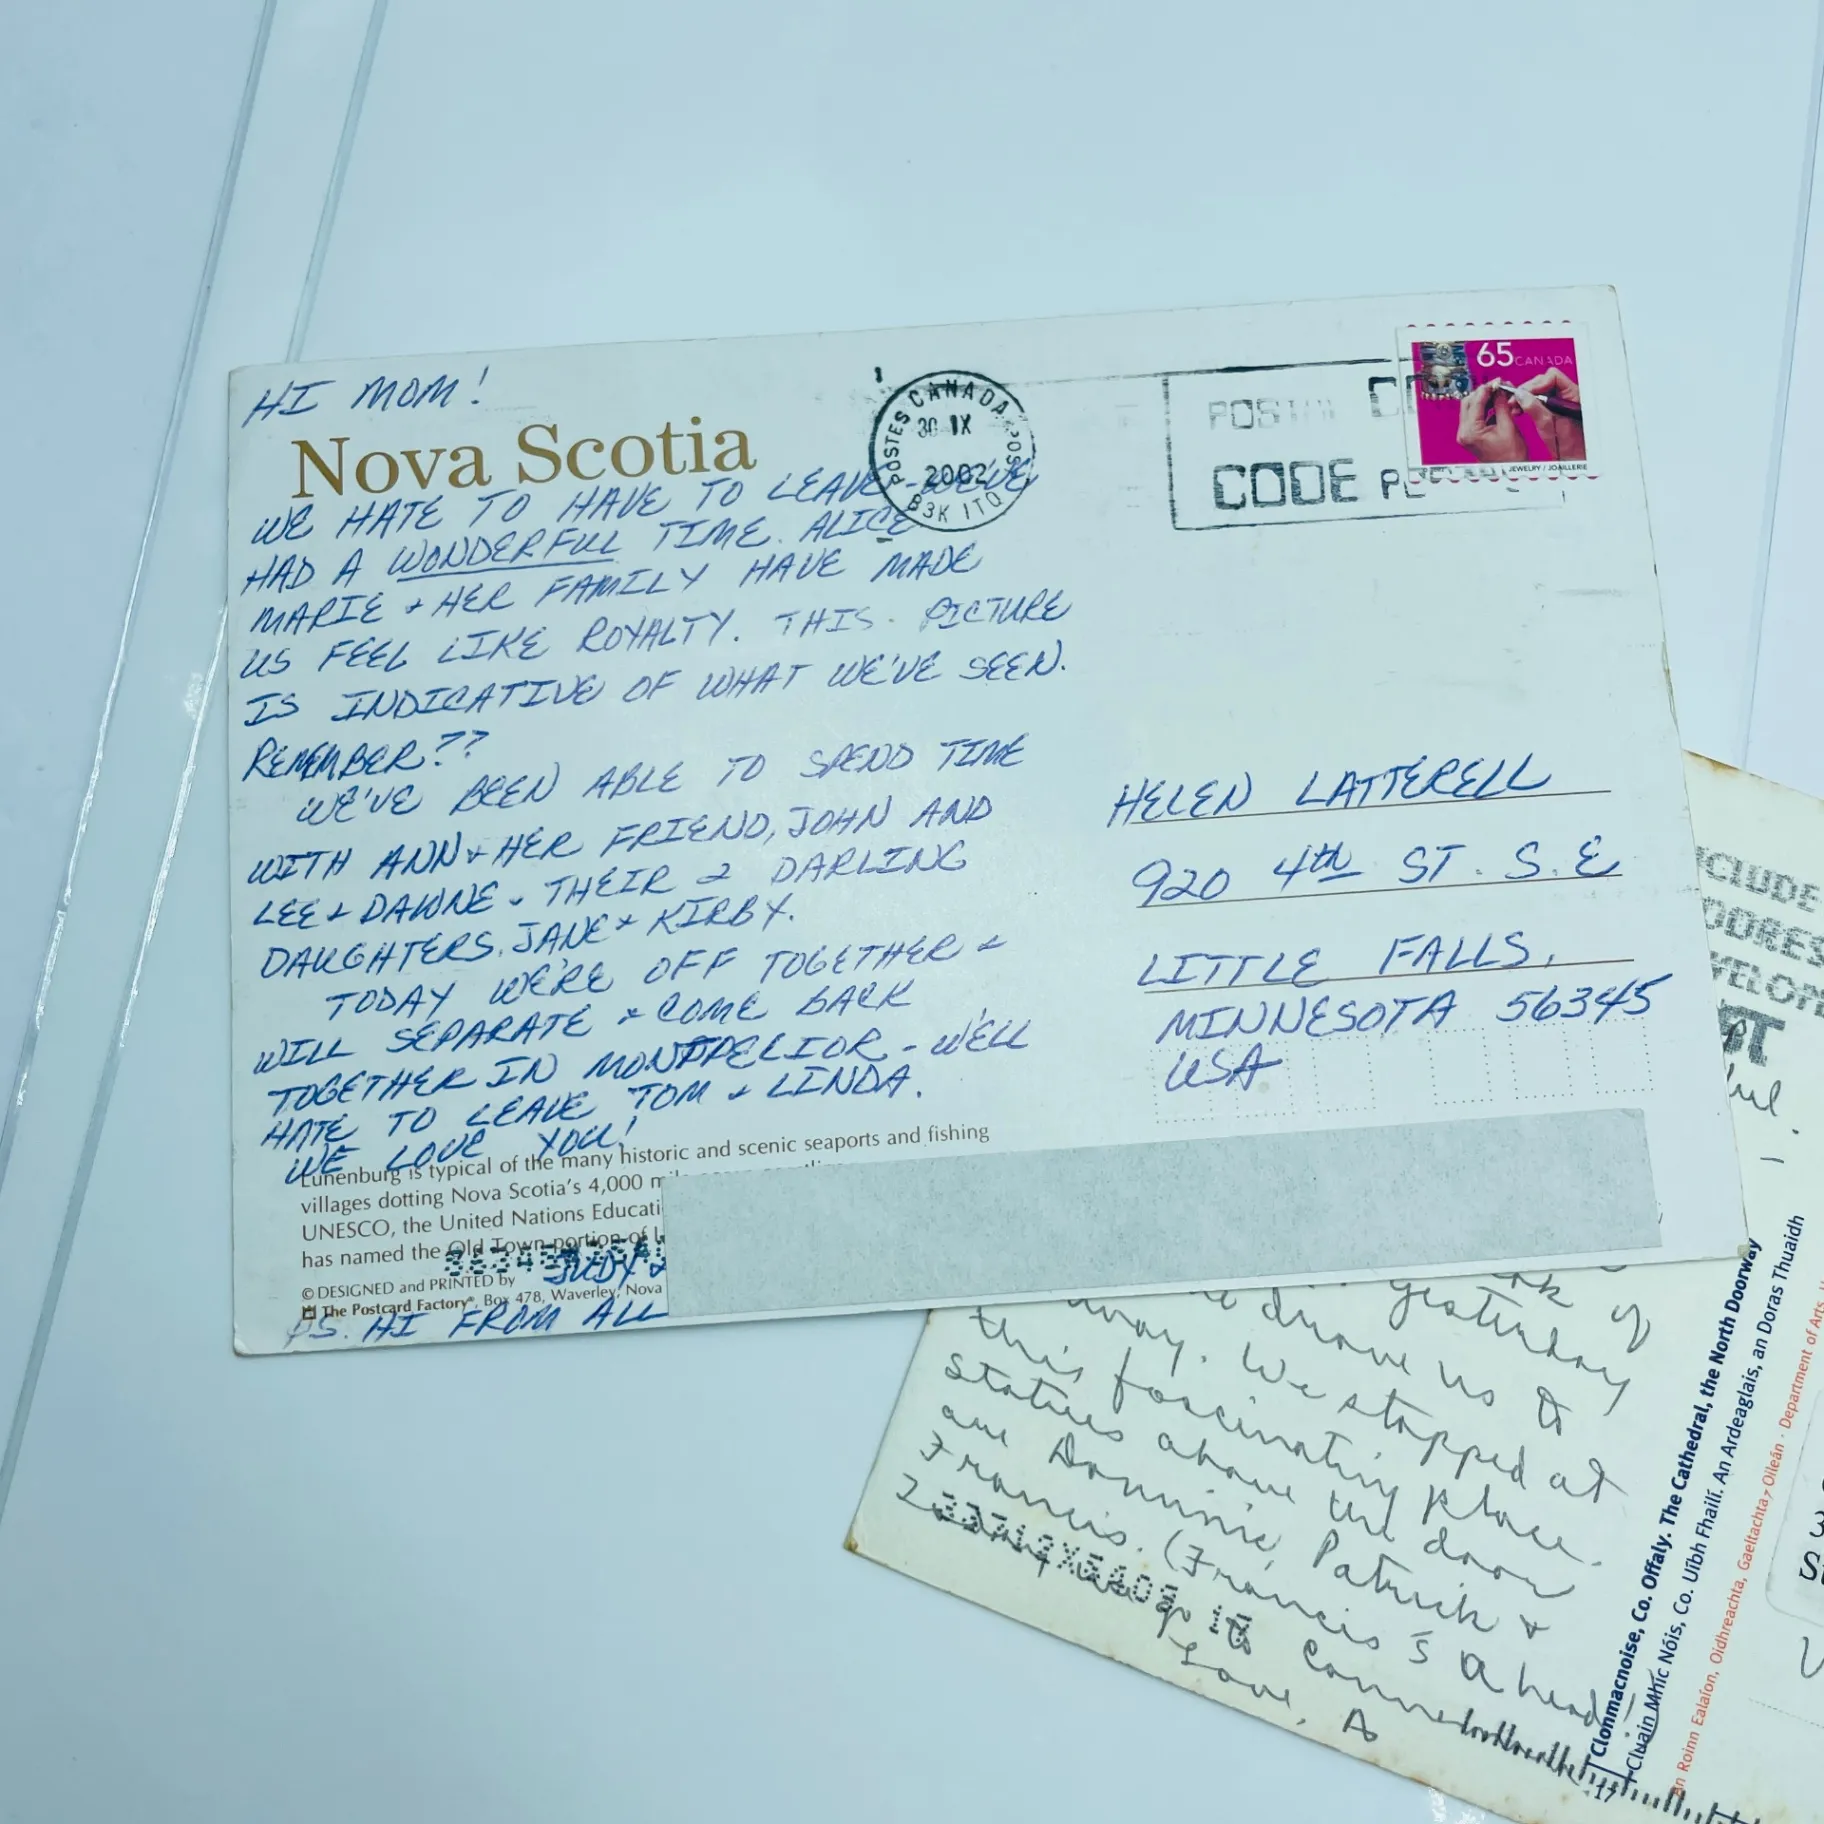 HI MOM!
Nova Scotia
WE HATE TO HAVE TO LEAVE - WE'VE
HAD A WONDERFUL TIME. ALICE
MARIE + HER FAMILY HAVE MADE
US FEEL LIKE ROYALTY. THIS PICTURE
IS INDICATIVE OF WHAT WE'VE SEEN.
REMEMBER??
WE'VE BEEN ABLE TO SPEND TIME
WITH ANN + HER FRIEND, JOHN AND
LEE + DAWNE - THEIR 2 DARLING
DAUGHTERS, JANE + KIRBY.
TODAY WE'RE OFF TOGETHER +
WILL SEPARATE + COME BACK
TOGETHER IN MONTPELIOR - WE'LL
HATE TO LEAVE TOM + LINDA.
WE LOVE YOU!
Lunenburg is typical of the many historic and scenic seaports and fishing
villages dotting Nova Scotia's 4,000
UNESCO, the United Nations
has named the Old Town portion of
JUDY &
© DESIGNED and PRINTED by
The Postcard Factory®, Box 478, Waverley, Nova
PS. HI FROM ALL
POSTES CANADA POST
30 IX
2002
B3K 1T0
POSTAL
CODE
65 CANADA
JEWELRY / JOAILLERIE
HELEN LATTERELL
920 4th ST. S.E
LITTLE FALLS,
MINNESOTA 56345
USA
drove us to
this fascinating place.
away. We stopped at
Statues above the door
are Dominic, Patrick &
Francis. (Francis's a head!
we go to
Love, A
yesterday
Clonmacnoise, Co. Offaly. The Cathedral, the North Doorway
Cluain Mhic Nóis, Co. Uíbh Fhailí. An Ardeaglais, an Doras Thuaidh
An Roinn Ealaíon, Oidhreachta, Gaeltachta, Oileán · Department of Arts,
17